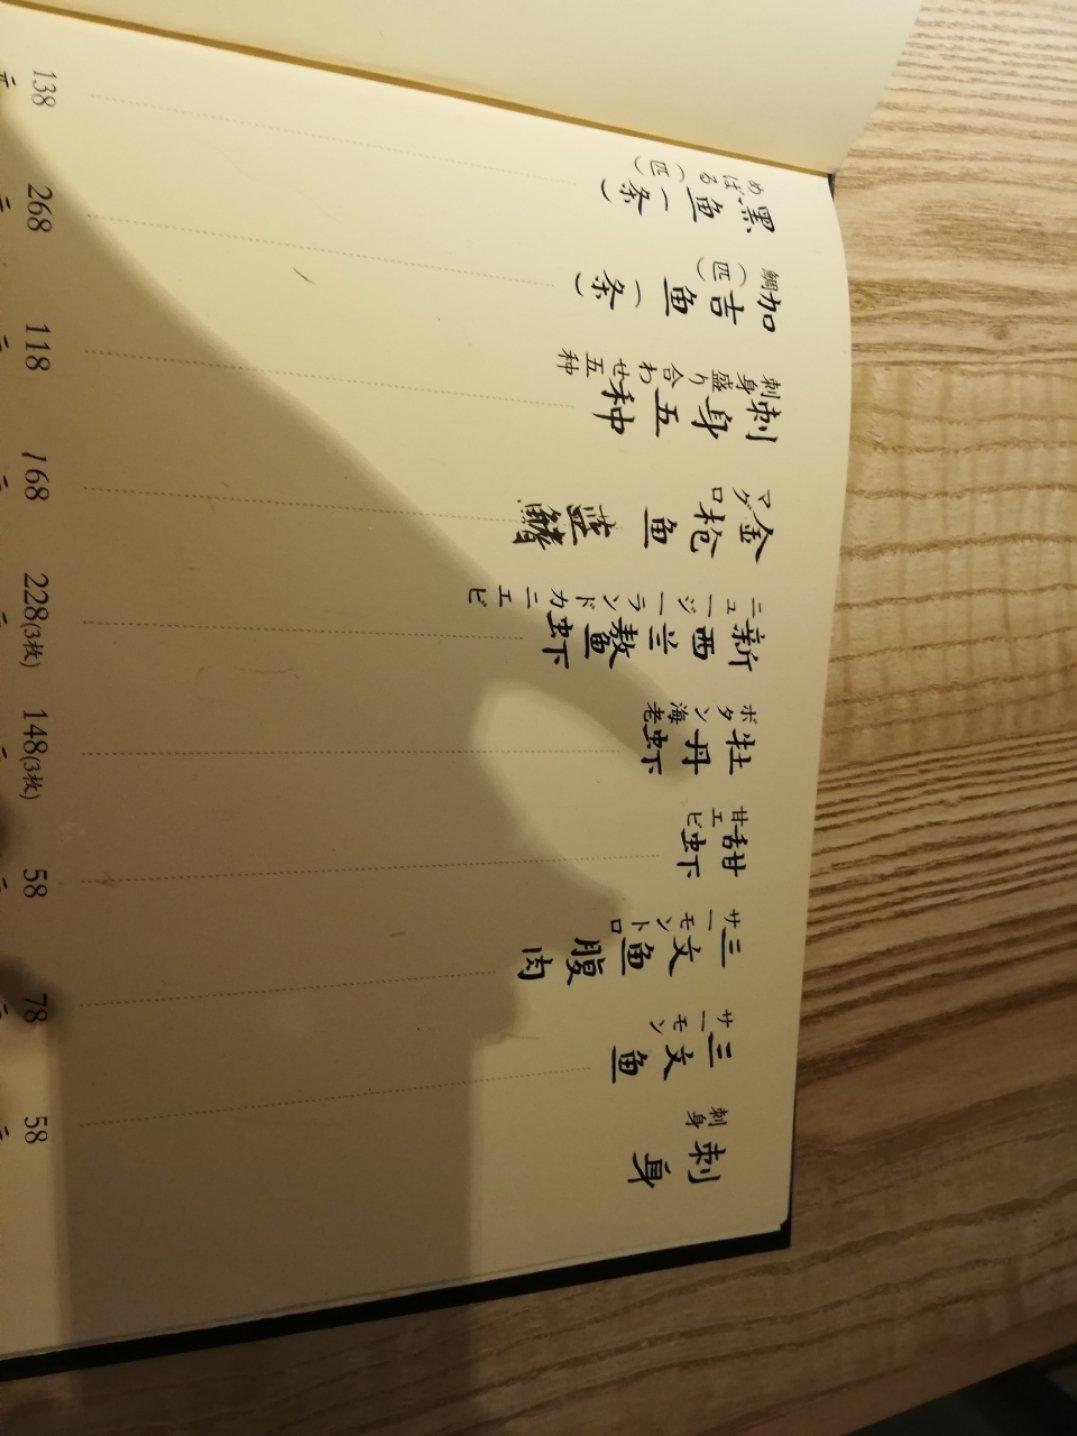 刺身
刺身
三文鱼 58
サーモン
三文鱼腹肉 78
サーモントロ
甜虾 58
甘エビ
牡丹虾 148(3枚)
ボタン海老
新西兰鳌虾 228(3枚)
ニュージーランドカニエビ
金枪鱼蓝鳍 168
マグロ
刺身五种 118
刺身盛り合わせ五种
加吉鱼(一条) 268
鯛(一匹)
黑鱼(一条) 138
めばる(一匹)